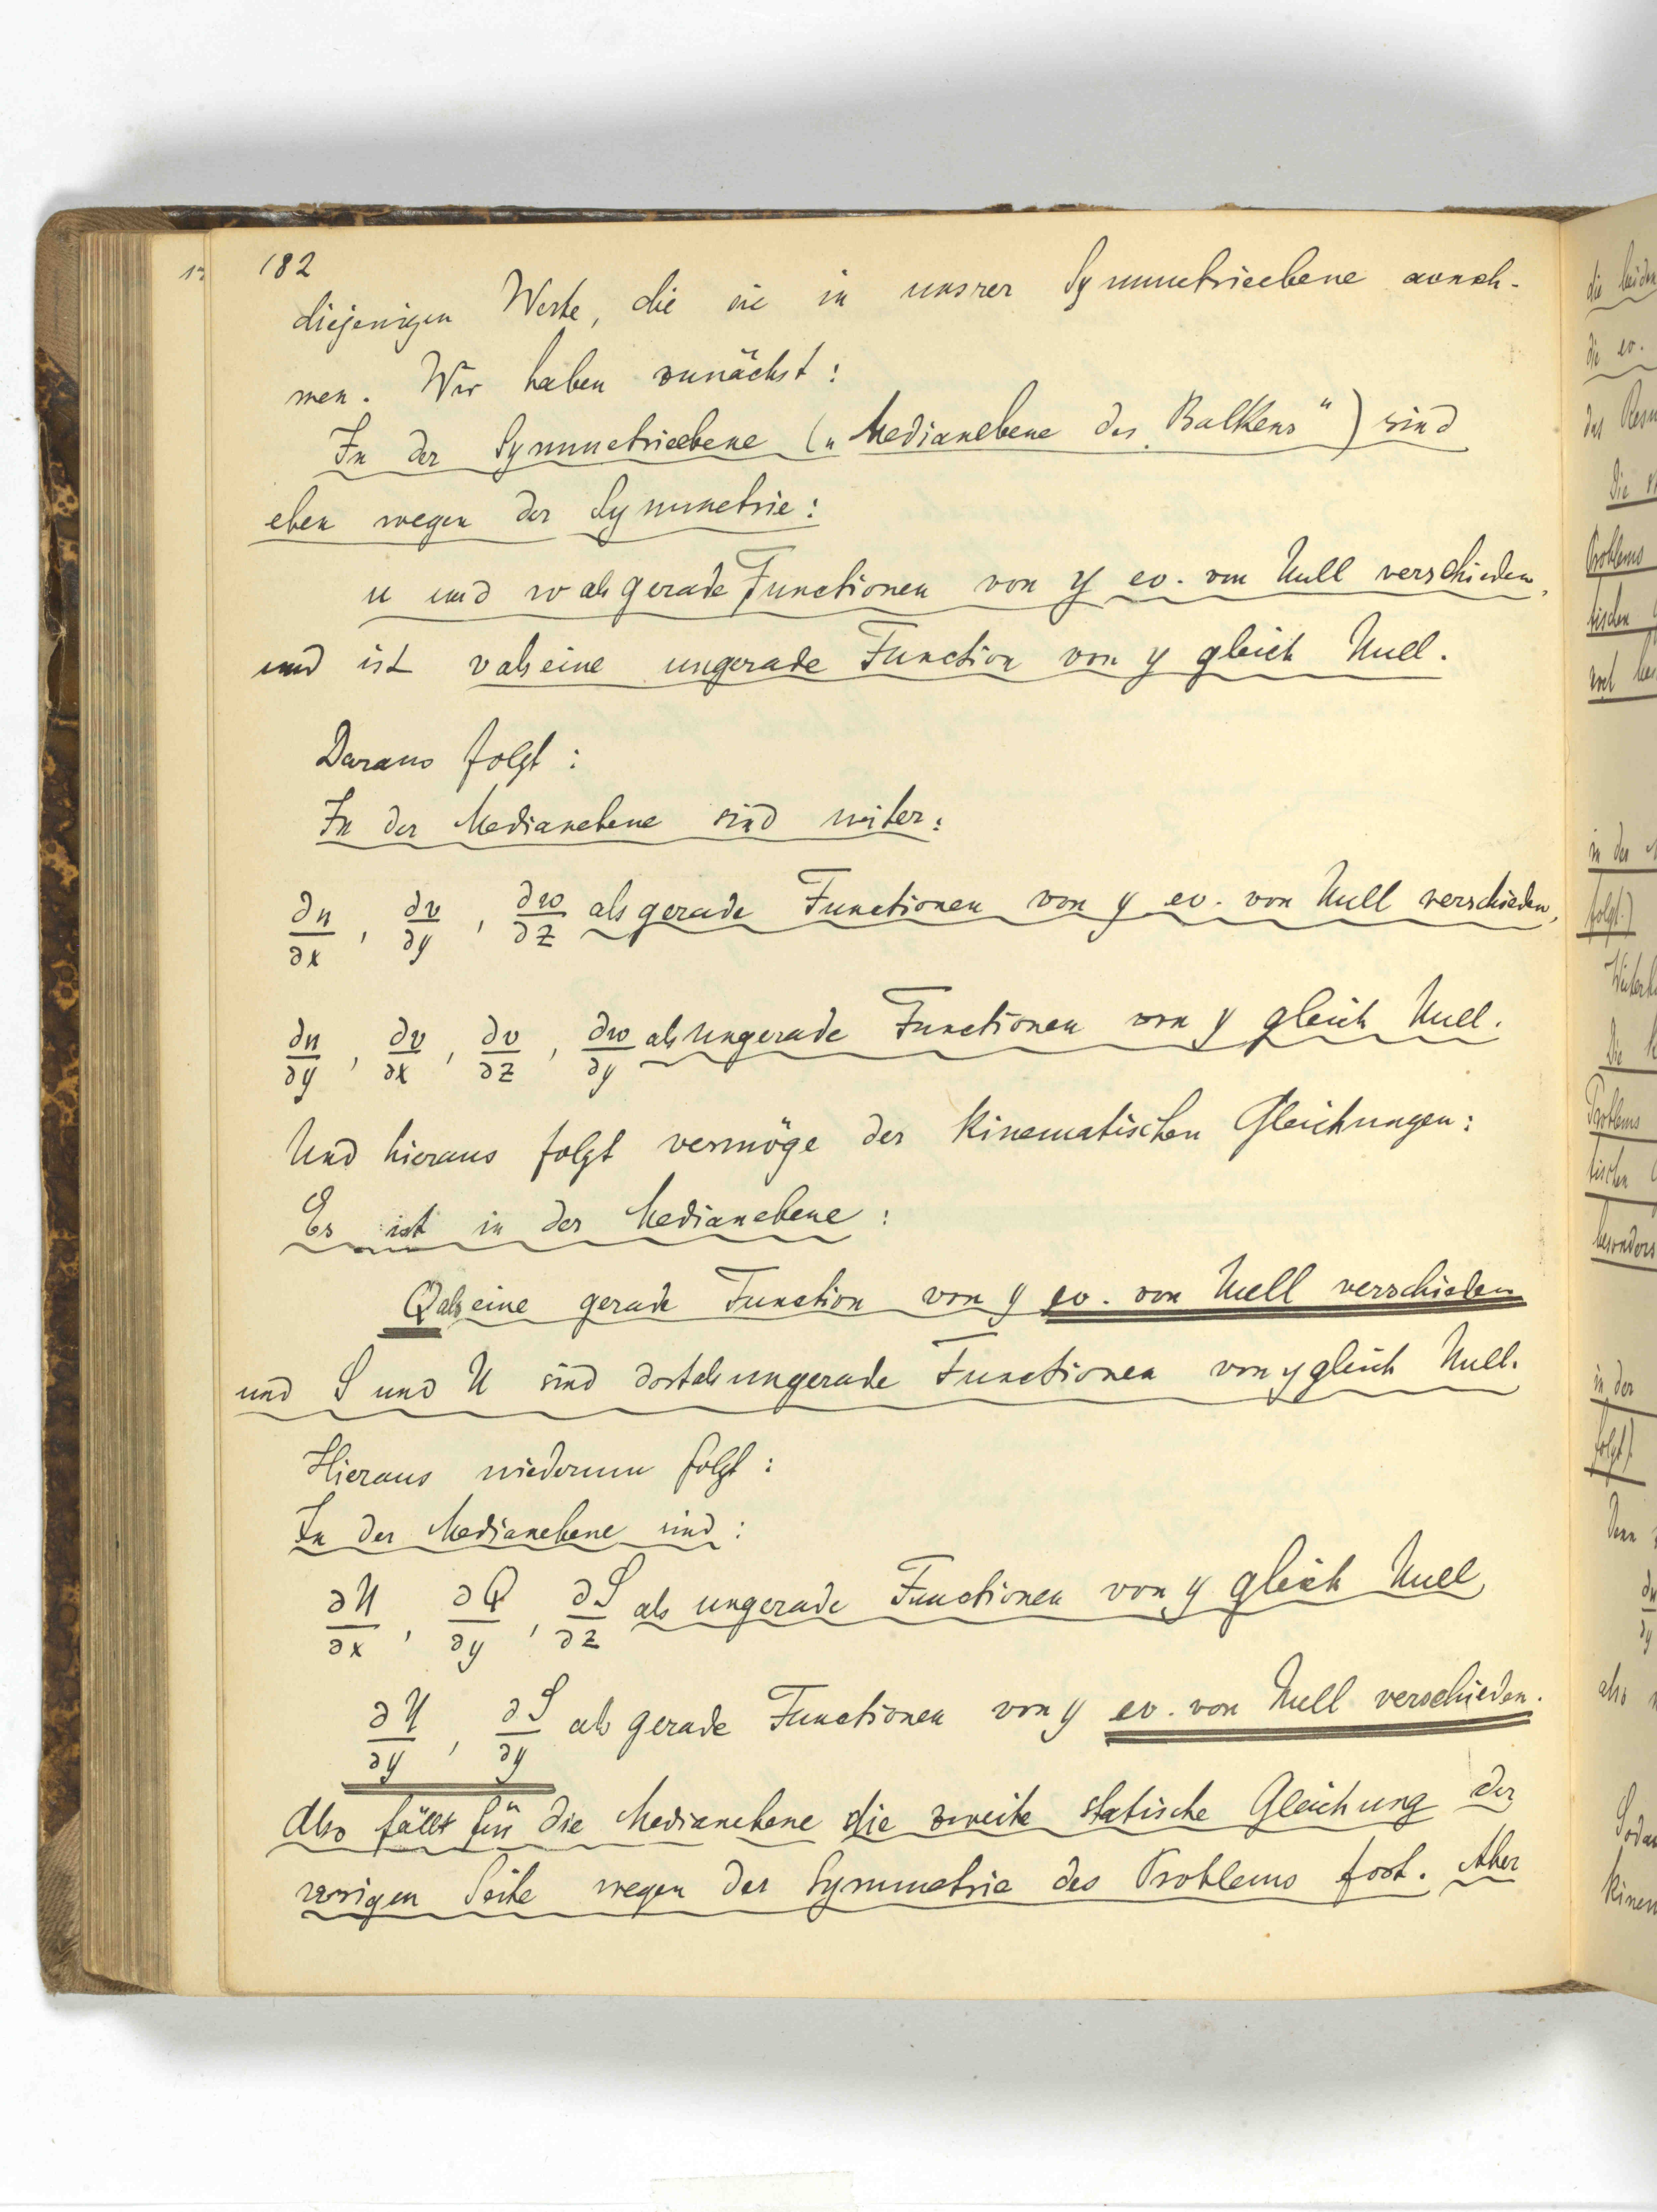 182
diejenigen Werte, die sie in unsrer Symmetrieebene anneh-
men. Wir haben zunächst:
In der Symmetrieebene („Medianebene des Balkens“) sind
eben wegen der Symmetrie:
u und w als gerade Functionen von y ev. von Null verschieden,
und ist v als eine ungerade Function von y gleich Null.
Daraus folgt:
In der Medianebene sind weiter:
∂u/∂x, ∂v/∂y, ∂w/∂z als gerade Functionen von y ev. von Null verschieden,
∂u/∂y, ∂v/∂x, ∂v/∂z, ∂w/∂y als ungerade Functionen von y gleich Null.
Und hieraus folgt vermöge der kinematischen Gleichungen:
Es ist in der Medianebene:
Q als eine gerade Function von y ev. von Null verschieden
und S und U sind dort als ungerade Functionen von y gleich Null.
Hieraus wiederum folgt:
In der Medianebene sind:
∂U/∂x, ∂Q/∂y, ∂S/∂z als ungerade Functionen von y gleich Null,
∂U/∂y, ∂S/∂y als gerade Functionen von y ev. von Null verschieden.
Also fällt für die Medianebene die zweite statische Gleichung der
vorigen Seite wegen der Symmetrie des Problems fort. Aber